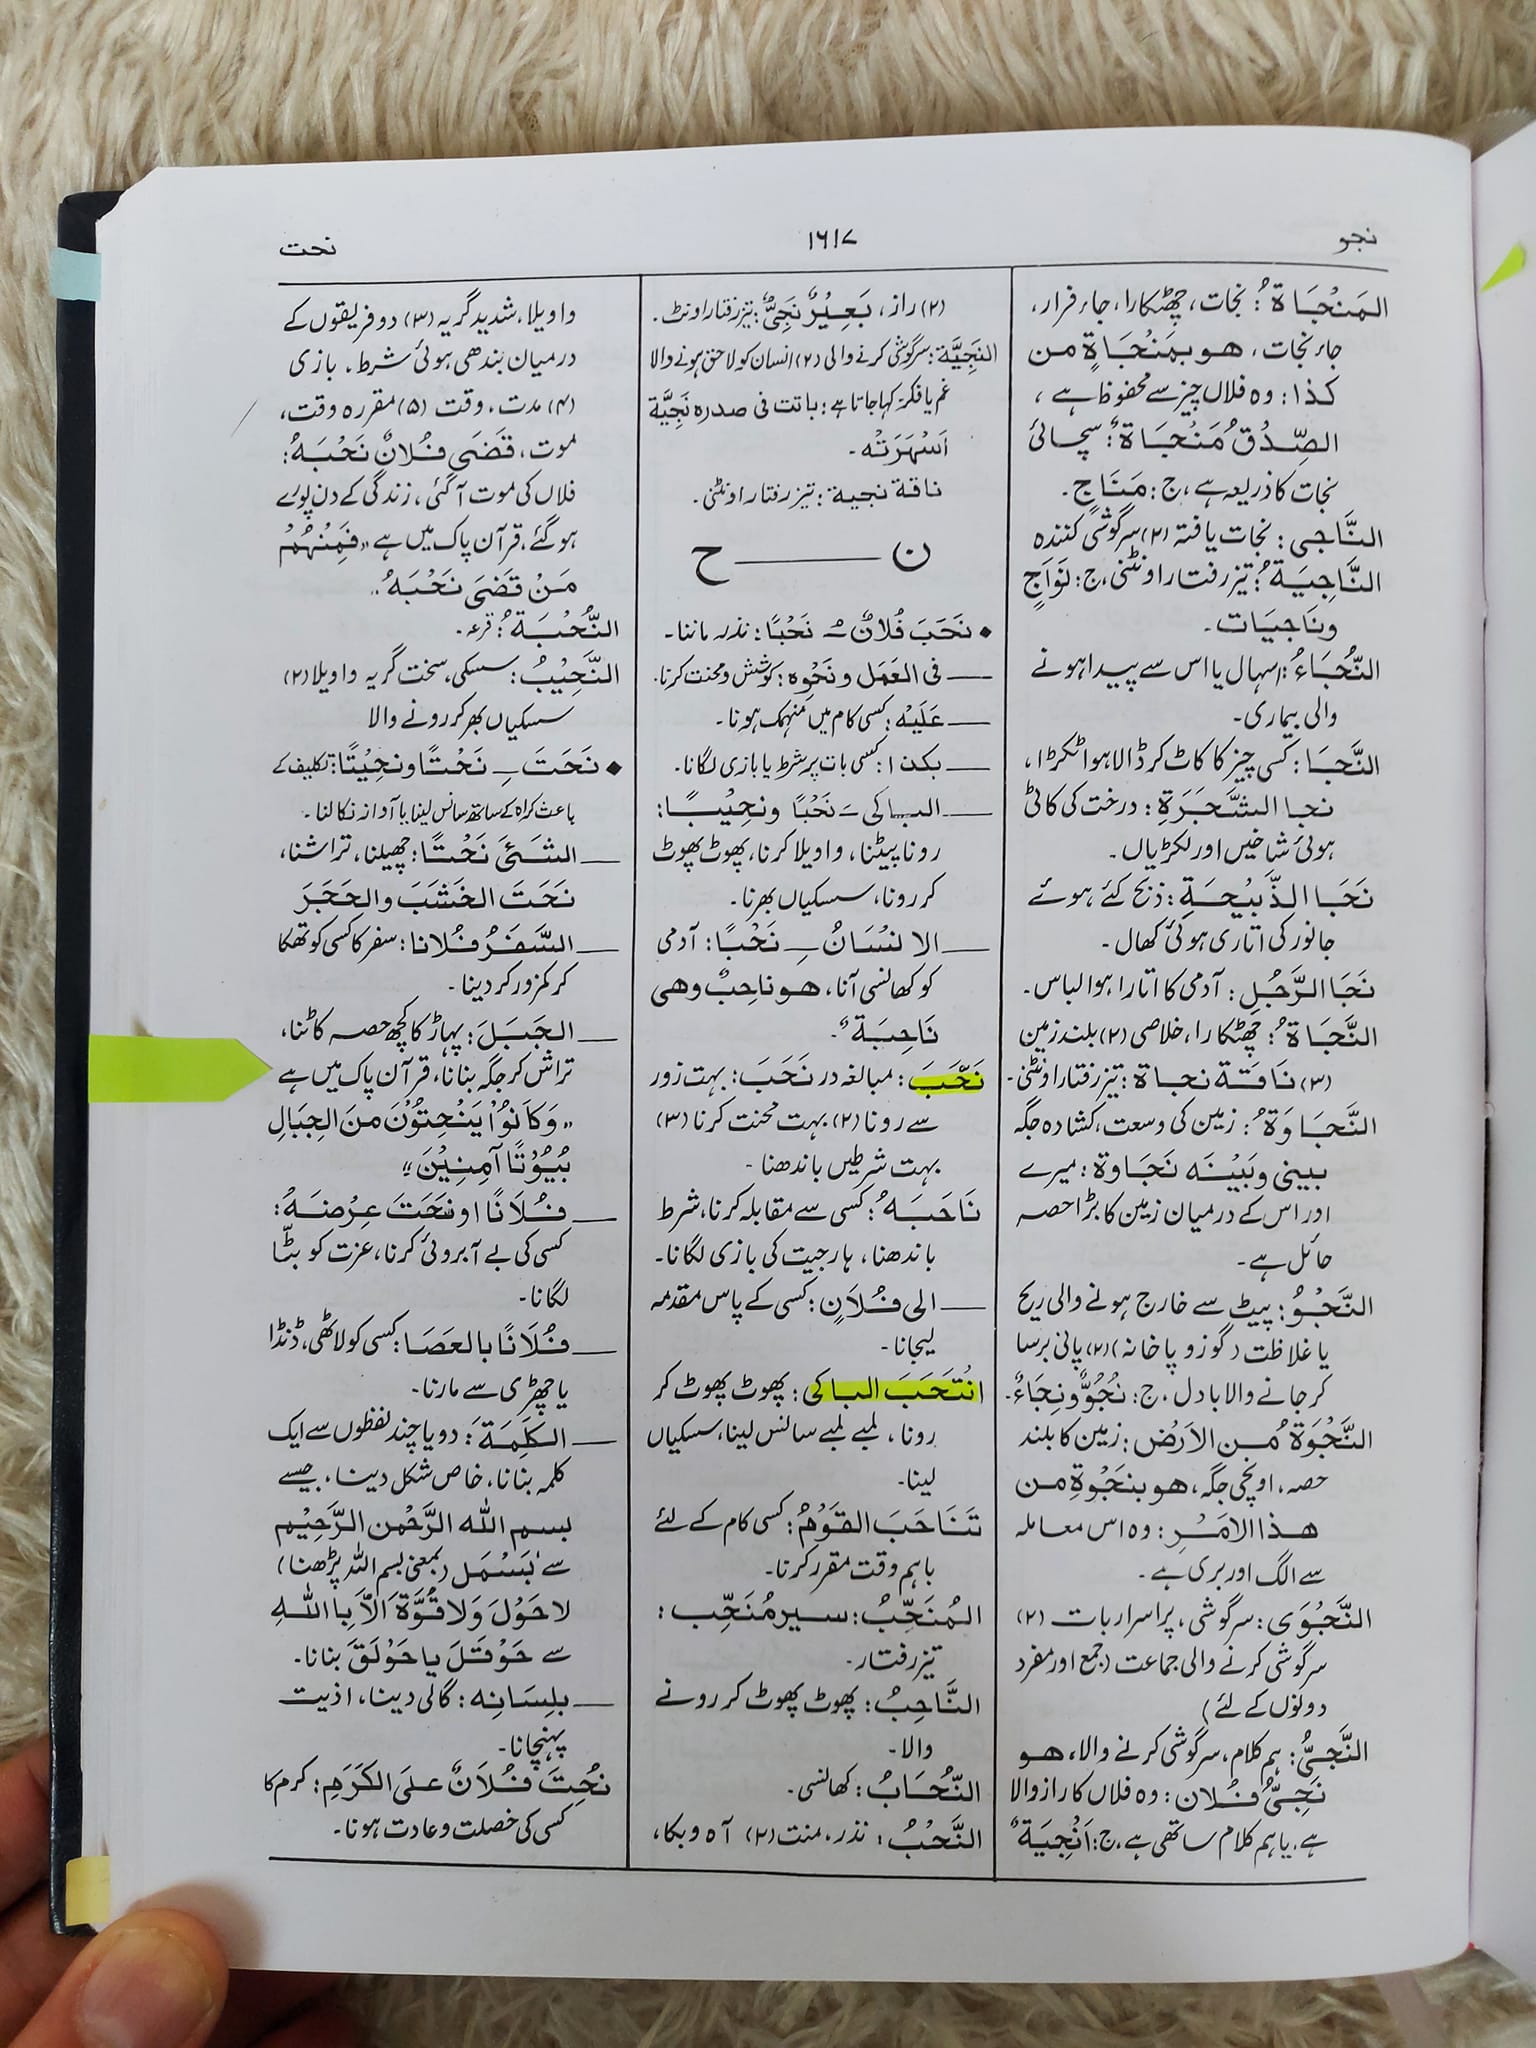 نجو
۱۶۱۷
نحت
المَنْجَاةُ: نجات، چھٹکارا، جاء فرار،
جاء نجات، هو بمَنْجَاةٍ من
كذا: وہ فلاں چیز سے محفوظ ہے،
الصِّدْقُ مَنْجَاةٌ: سچائی
نجات کا ذریعہ ہے، ج: مَنَاجٍ۔
النَّاجى: نجات یافتہ (۲) سرگوشی کنندہ
النَّاجِيَةُ: تیز رفتار اونٹنی، ج: نَوَاجٍ
وناجيَات۔
النُّجَاءُ: اسہال یا اس سے پیدا ہونے
والی بیماری۔
النَّجَا: کسی چیز کا کاٹ کر ڈالا ہوا ٹکڑا،
نجا الشَّجَرَةِ: درخت کی کاٹی
ہوئی شاخیں اور لکڑیاں۔
نَجَا الذَّبِيْحَةِ: ذبح کئے ہوئے
جانور کی اتاری ہوئی کھال۔
نَجَا الرَّجُلِ: آدمی کا اتارا ہوا لباس۔
النَّجَاةُ: چھٹکارا، خلاصی (۲) بلند زمین
(۳) نَاقَة نجاة: تیز رفتار اونٹنی۔
النَّجَاوَةُ: زمین کی وسعت، کشادہ جگہ
بينى وبَيْنَه نَجَاوة: میرے
اور اس کے درمیان زمین کا بڑا حصہ
حائل ہے۔
النَّجْوُ: پیٹ سے خارج ہونے والی ریح
یا غلاظت (گوز و پاخانہ) (۲) پانی برسا
کر جانے والا بادل، ج: نُجُوٌّ ونِجَاءٌ۔
النَّجْوَةُ من الاَرْض: زمین کا بلند
حصہ، اونچی جگہ، هو بنَجْوَةٍ من
هذا الامَرِ: وہ اس معاملہ
سے الگ اور بری ہے۔
النَّجْوَى: سرگوشی، پراسرار بات (۲)
سرگوشی کرنے والی جماعت (جمع اور مفرد
دونوں کے لئے)
النَّجِىُّ: ہم کلام، سرگوشی کرنے والا، هو
نَجِىُّ فُلان: وہ فلاں کا راز والا
ہے، یا ہم کلام ساتھی ہے، ج: اَنْجِيَةٌ
(۲) راز، بَعِيْرٌ نَجِىٌّ: تیز رفتار اونٹ۔
النَجِيَّة: سرگوشی کرنے والی (۲) انسان کو لاحق ہونے والا
غم یا فکر، کہا جاتا ہے: باتت فى صدره نَجِيَّة
اَسْهَرَتْه۔
ناقة نجية: تیز رفتار اونٹنی۔
ن ——— ح
• نَحَبَ فُلانٌ ـُ نَحْبًا: نذر ماننا۔
— فى العَمَل ونَحْوِه: کوشش و محنت کرنا۔
— عَلَيْه: کسی کام میں منہمک ہونا۔
— بكذا: کسی بات پر شرط یا بازی لگانا۔
— الباكى ـَ نَحْبًا ونحِيْبًا:
رونا پیٹنا، واویلا کرنا، پھوٹ پھوٹ
کر رونا، سسکیاں بھرنا۔
— الانْسَانُ ـِ نَحْبًا: آدمی
کو کھانسی آنا، هو ناحِبٌ وهى
نَاحِبَةٌ۔
نَحَّبَ: مبالغہ در نَحَبَ: بہت زور
سے رونا (۲) بہت محنت کرنا (۳)
بہت شرطیں باندھنا۔
نَاحَبَهُ: کسی سے مقابلہ کرنا، شرط
باندھنا، ہار جیت کی بازی لگانا۔
— الى فُلاَنٍ: کسی کے پاس مقدمہ
لیجانا۔
انْتَحَبَ الباكى: پھوٹ پھوٹ کر
رونا، لمبے لمبے سانس لینا، سسکیاں
لینا۔
تَنَاحَبَ القَوْمُ: کسی کام کے لئے
باہم وقت مقرر کرنا۔
المُنَحِّبُ: سير مُنَحِّب:
تیز رفتار۔
النَّاحِبُ: پھوٹ پھوٹ کر رونے
والا۔
النُّحَابُ: کھانسی۔
النَّحْبُ: نذر، منت (۲) آہ و بکا،
واویلا، شدید گریہ (۳) دو فریقوں کے
درمیان بندھی ہوئی شرط، بازی
(۴) مدت، وقت (۵) مقررہ وقت،
موت، قَضَى فُلانٌ نَحْبَهُ:
فلاں کی موت آگئی، زندگی کے دن پورے
ہو گئے، قرآن پاک میں ہے «فَمِنْهُمْ
مَنْ قَضَى نَحْبَهُ»
النُّحْبَةُ: قرعہ۔
النَّحِيْبُ: سسکی، سخت گریہ واویلا (۲)
سسکیاں بھر کر رونے والا
• نَحَتَ ـِ نَحْتًا ونَحِيْتًا: تکلیف کے
باعث کراہ کے ساتھ سانس لینا یا آواز نکالنا۔
— الشَىْءَ نَحْتًا: چھیلنا، تراشنا،
نَحَتَ الخَشَبَ والحَجَرَ
— السَّفَرُ فُلانا: سفر کا کسی کو تھکا
کر کمزور کر دینا۔
— الجَبَلَ: پہاڑ کا کچھ حصہ کاٹنا،
تراش کر جگہ بنانا، قرآن پاک میں ہے
«وَكَانُوْا يَنْحِتُوْنَ مِنَ الجِبَالِ
بُيُوْتًا آمِنِيْنَ»
— فُلاَنًا او نَحَتَ عِرْضَهُ:
کسی کی بے آبروئی کرنا، عزت کو بٹّا
لگانا۔
— فُلاَنًا بالعَصَا: کسی کو لاٹھی، ڈنڈا
یا چھڑی سے مارنا۔
— الكَلِمَةَ: دو یا چند لفظوں سے ایک
کلمہ بنانا، خاص شکل دینا، جیسے
بسم الله الرَّحْمن الرَّحِيْم
سے بَسْمَلَ (بمعنی بسم اللہ پڑھنا)
لاحَوْلَ وَلاقُوَّةَ اَلاَّ باللهِ
سے حَوْقَلَ یا حَوْلَقَ بنانا۔
— بلِسَانِه: گالی دینا، اذیت
پہنچانا۔
نُحِتَ فُلاَنٌ عَلىَ الكَرَمِ: کرم کا
کسی کی خصلت و عادت ہونا۔